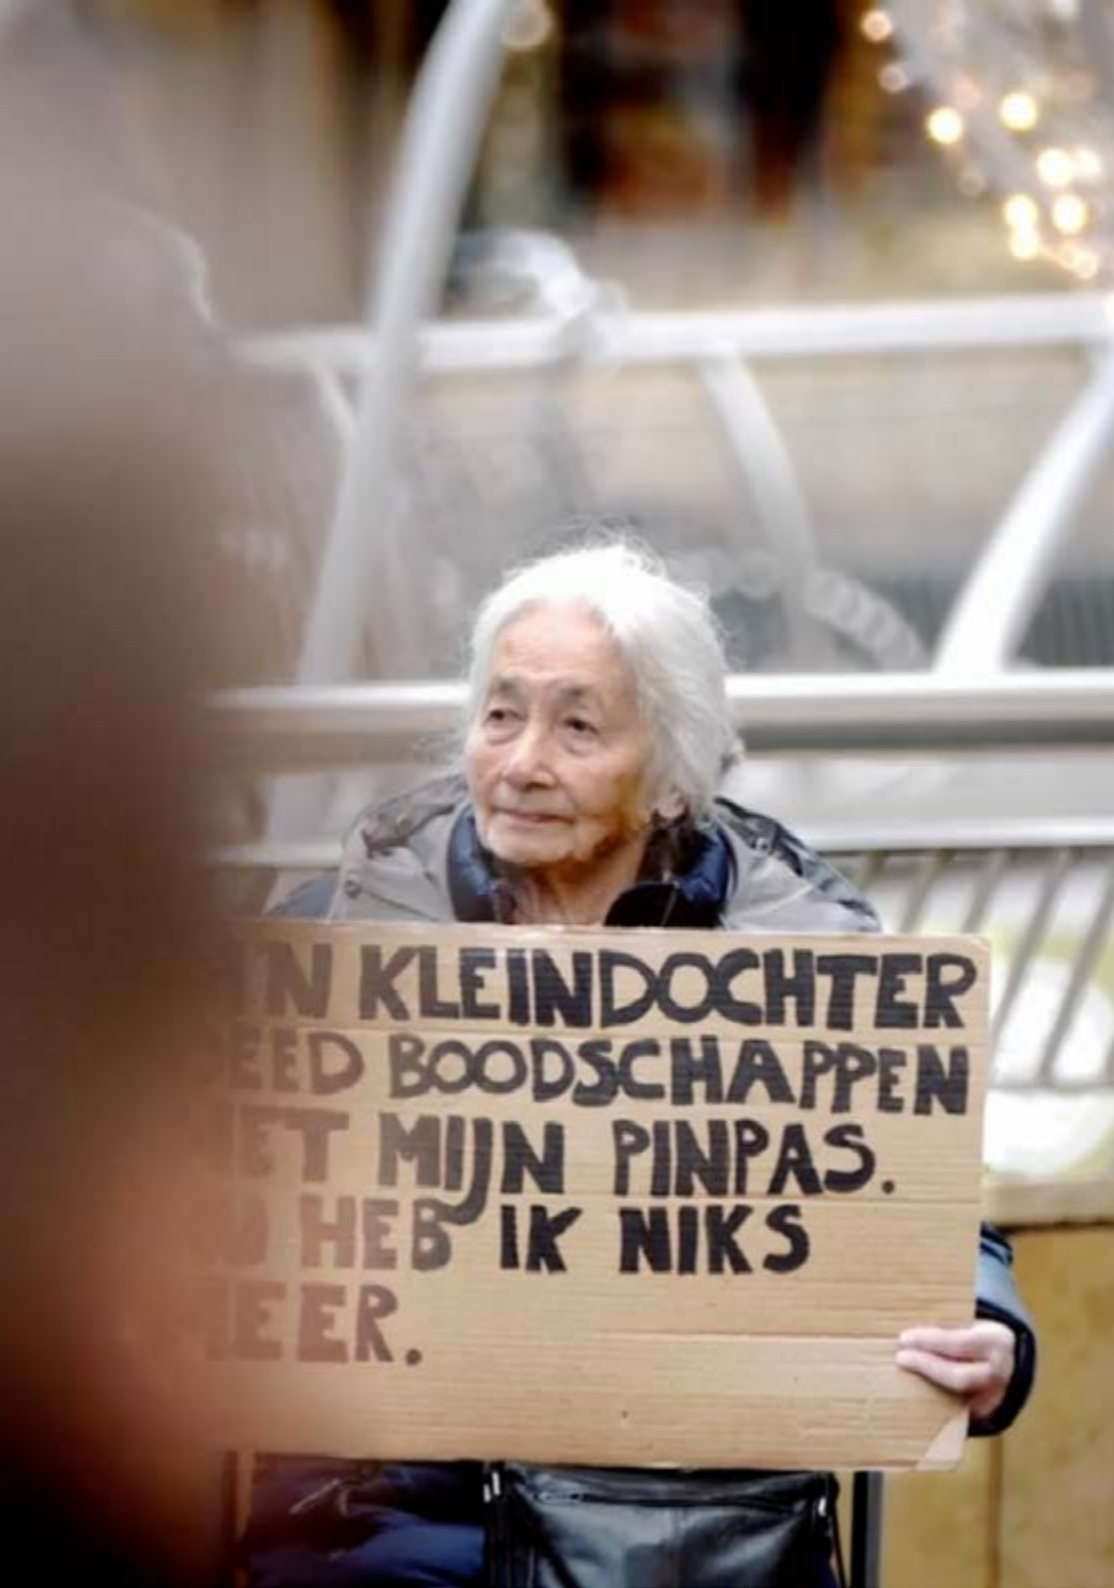 KLEINDOCHTER
BOODSCHAPPEN
MIJN PINPAS.
HEB IK NIKS